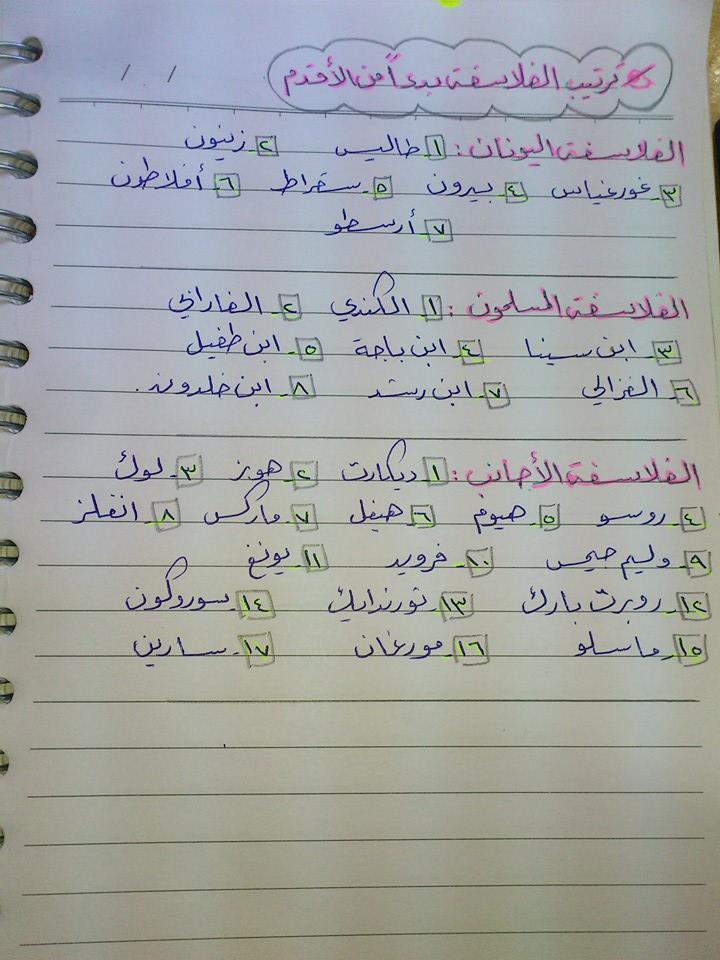 ترتيب الفلاسفة بدءاً من الأقدم
/ /
الفلاسفة اليونان : ١ طاليس ٢ زينون
٣ غورغياس ٤ بيرون ٥ سقراط ٦ أفلاطون
٧ أرسطو
الفلاسفة المسلمون : ١ الكندي ٢ الفارابي
٣ ابن سينا ٤ ابن باجة ٥ ابن طفيل
٦ الغزالي ٧ ابن رشد ٨ ابن خلدون .
الفلاسفة الأجانب : ١ ديكارت ٢ هوبز ٣ لوك
٤ روسو ٥ هيوم ٦ هيغل ٧ ماركس ٨ انغلز
٩ وليم جيمس ١٠ فرويد ١١ يونغ
١٢ روبرت بارك ١٣ ثورندايك ١٤ سوروكون
١٥ ماسلو ١٦ مورغان ١٧ سارين